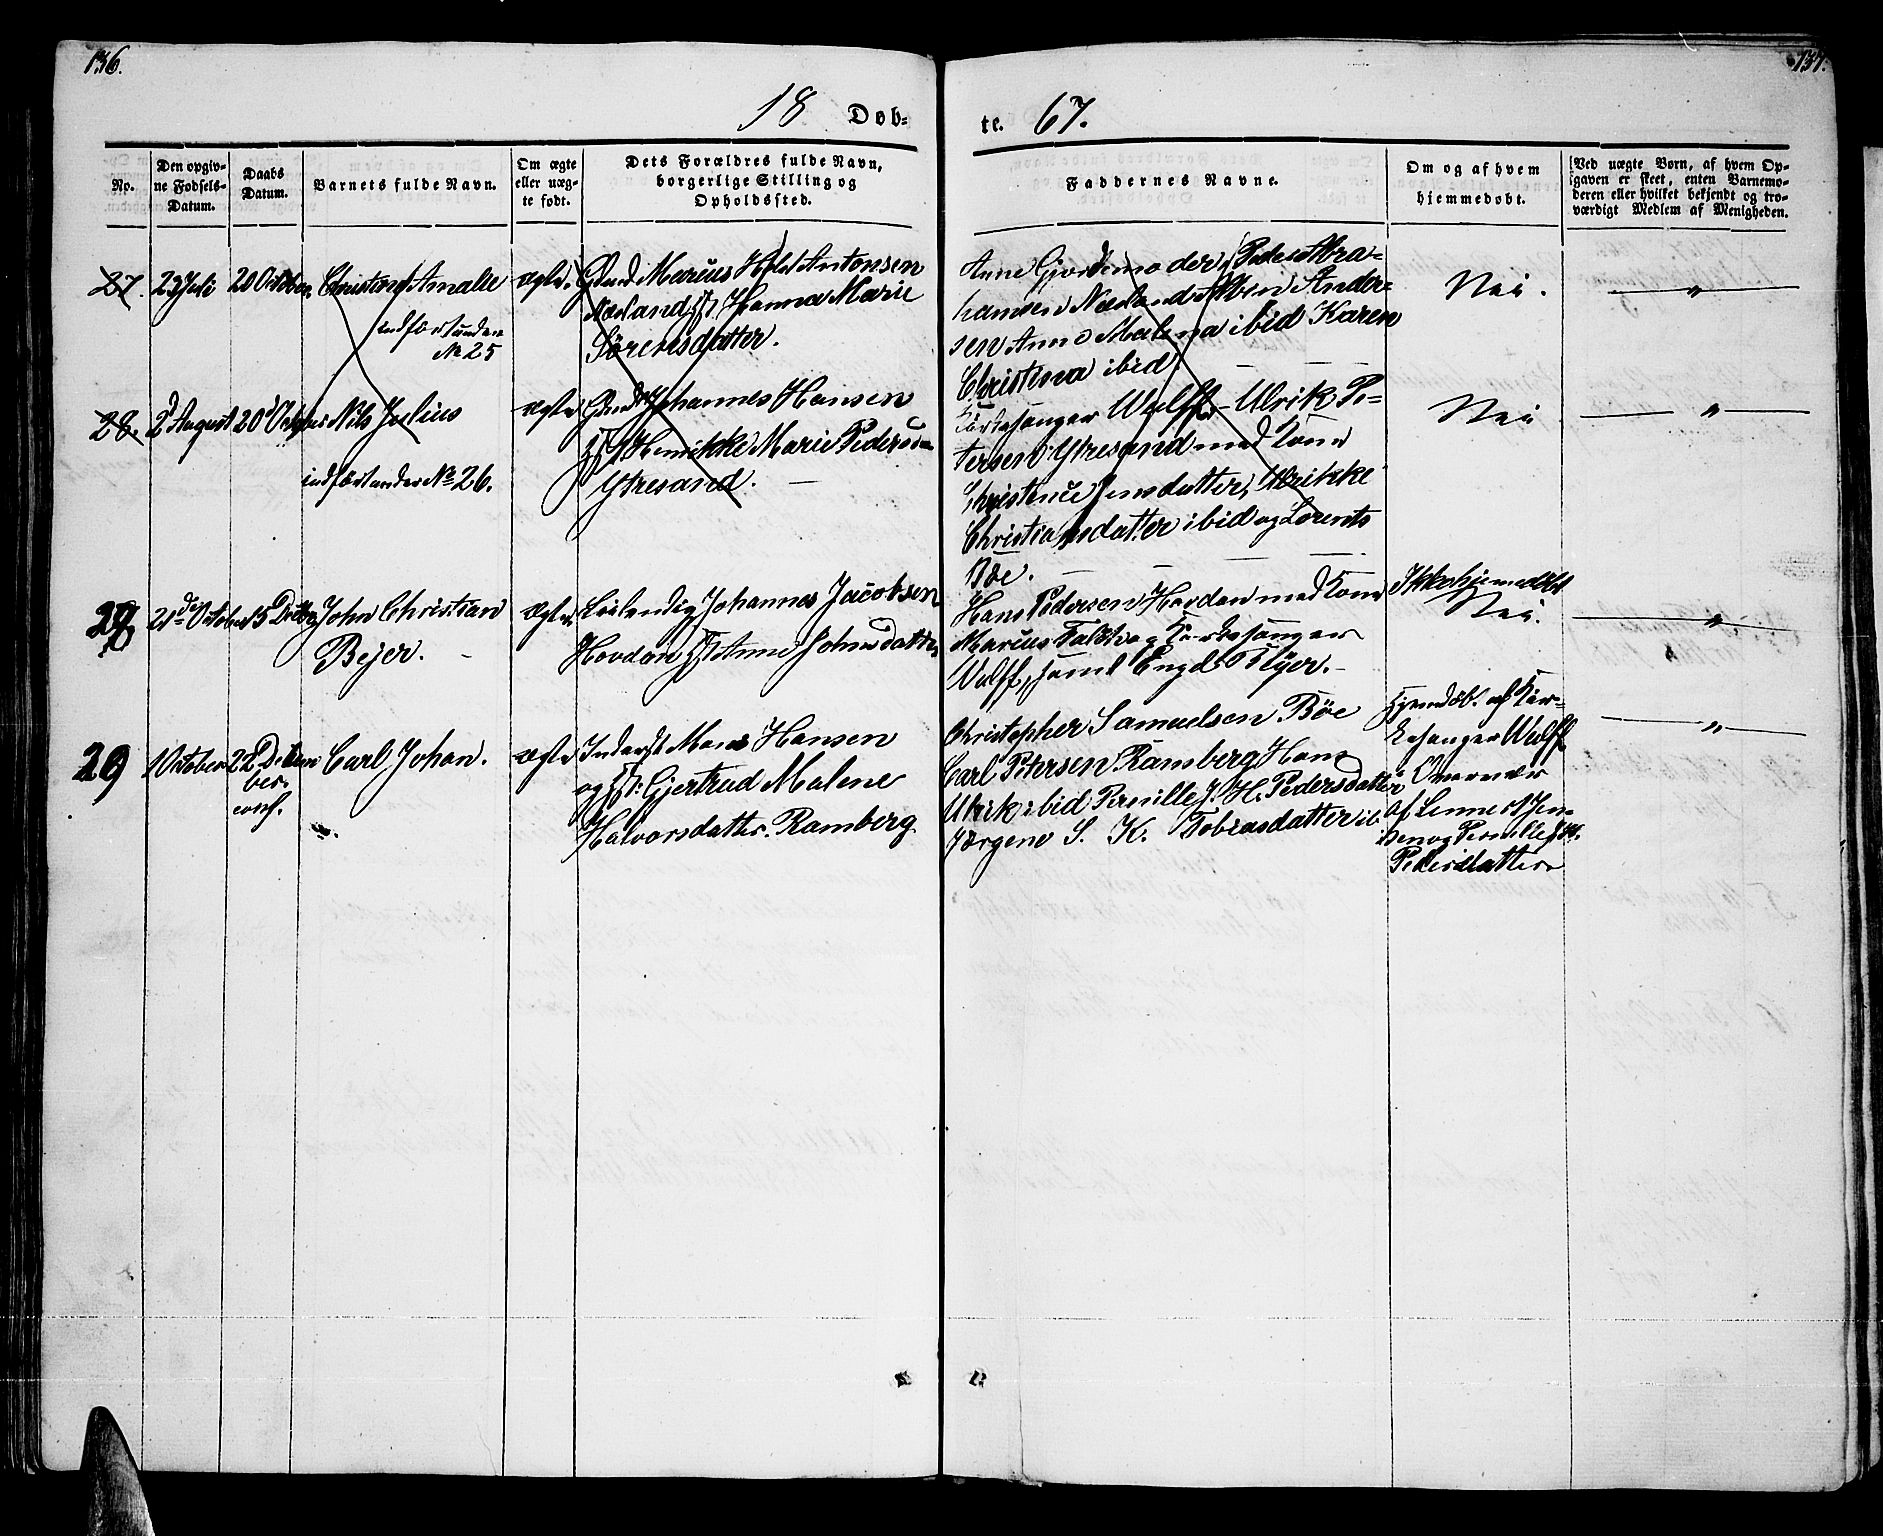 136.
137.
18 Døb-
te. 67.
No.
Den opgiv-
ne Fødsels-
Datum.
Daabs
Datum.
Barnets fulde Navn.
Om ægte
eller uæg-
te født.
Dets Forældres fulde Navn,
borgerlige Stilling og
Opholdssted.
Faddernes Navne.
Om og af hvem
hjemmedøbt.
Ved uægte Børn, af hvem Op-
gaven er skeet, enten Barnemo-
deren eller hvilket bekjendt og tro-
værdigt Medlem af Menigheden.
27.
23 Juli
20 October
Amalie
indført under
No 25
ægte.
Marius Antonsen
Næsland Hanna Marie
Sörensdatter.
Anne Gjordemoder, Peder Abra-
hamsen Næsland Ander-
sen Anne Malena ibid Karen
Christina ibid
Nei.
"
28.
2d August
20d
Nils Julius
indført under No 26.
ægte
Johannes Hansen
Henrikke Marie
Ytresand.
Kirkesanger Wulff Ulrik Pe-
tersen Ytresand med Kone
Jensdatter, Ulrikke
Christiansdatter ibid og Lorents
Böe.
Nei
"
28
21de October
15
John Christian
Bejer.
ægte
Leilending Johannes Jacobsen
Hovdan Anne Johnsdatter
Hans Pedersen Hovdan med Kone
Marius Falch og Kirkesanger
Wulff, samt
Ikke hjemmedøbt
Nei.
"
29
1 October
22 Decem
ber
conf.
Carl Johan.
ægte
Inderst Mons Hansen
og Gjertrud Malene
Halvorsdatter. Ramberg
Christopher Samuelsen Böe
Carl Petersen Ramberg Hans
Ulrik ibid Pernille J. H. Pedersdatter
Jørgene S. K. Tobiasdatter ib
Hjemdöb. af Kir-
kesanger Wulff
Overvær
af Jen-
sen og Pernille
Pedersdatter
"